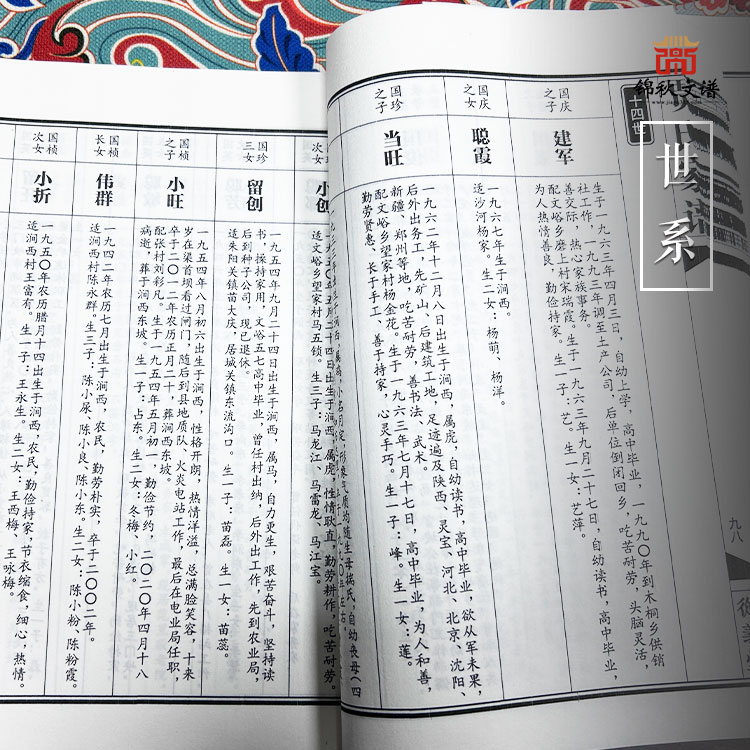 锦秋文谱
世系
十四世
九八
国庆
之子
建军
生于一九六三年四月三日，自幼上学，高中毕业，一九九〇年到木桐乡供销
社工作，一九九三年调至土产公司，后单位倒闭回乡，吃苦耐劳，头脑灵活，
善交际，热心家族事务。
配文峪乡磨上村宋瑞霞。生于一九六三年九月二十七日，自幼读书，高中毕业，
为人热情善良，勤俭持家。生一子：艺。生一女：艺萍。
国庆
之女
聪霞
一九六七年生于涧西。
适沙河杨家。生二女：杨萌、杨洋。
国珍
之子
当旺
一九六二年十二月八日出生于涧西，属虎，自幼读书，高中毕业，欲从军未果，
后外出务工，先矿山、后建筑工地，足迹遍及陕西、灵宝、河北、北京、沈阳、
新疆、郑州等地，吃苦耐劳，善书法、武术。
配文峪乡望家村杨金花。生于一九六三年七月十七日，高中毕业，为人和善，
勤劳贤惠、长于手工、善于持家，心灵手巧。生一子：峰。生一女：莲。
小创
适文峪乡望家村马五锁。生三子：马龙江、马雷龙、马江宝。
国珍
三女
留创
一九五四年九月二十四日出生于涧西，属马，自力更生，艰苦奋斗，坚持读
书，操持家用，文峪五七高中毕业，曾任村出纳，后外出工作，先到农业局，
后到种子公司，现已退休。
适朱阳关镇苗大庆，居城关镇东流沟口。生一子：苗磊。生一女：苗蕊。
国桢
之子
小旺
一九五四年八月初六出生于涧西，性格开朗，热情洋溢，总满脸笑容，十来
岁在渠首坝看过闸门，随后到县地质队、火炎电站工作，最后在电业局任职，
卒于二〇一二年农历正月二十，葬涧西东坡。
配张村刘彩凡。生于一九五四年五月初一，勤俭节约，二〇二〇年四月十八
病逝，葬于涧西东坡。生一子：占东。生二女：冬梅、小红。
国桢
长女
伟群
一九四二年农历七月出生于涧西，农民，勤劳朴实，卒于二〇〇二年。
适涧西村陈永群。生三子：陈小尿、陈小良、陈小东。生二女：陈小粉、陈粉霞。
国桢
次女
小折
一九五〇年农历腊月十四出生于涧西，农民，勤俭持家，节衣缩食，细心，热情。
适涧西村王富有。生一子：王永生。生二女：王西梅、王咏梅。